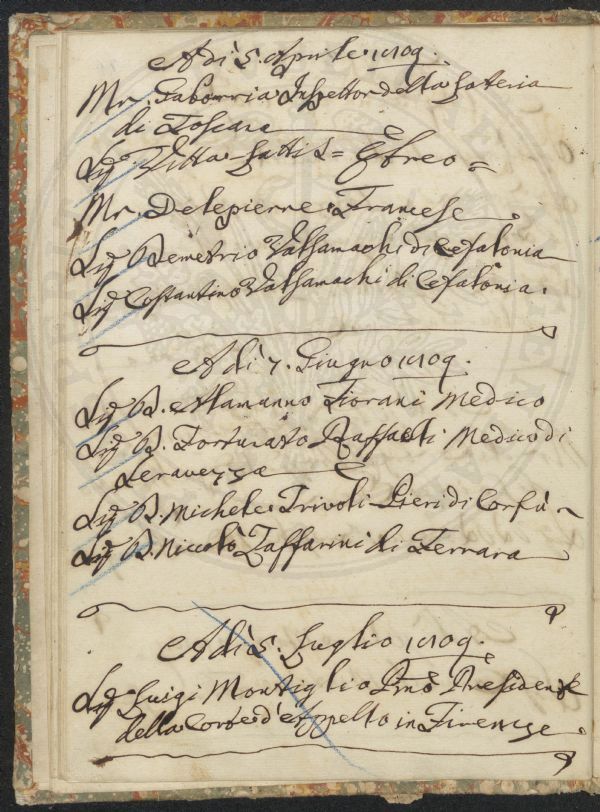 A dì 5. Aprile 1809.
Mr. Gaborria Inspettor della Gateria
di Toscana
Sig. Vitta Gattis = Ebreo =
Mr. Delepierre Francese
Sig. Demetrio Valsamachi di Cefalonia
Sig. Costantino Valsamachi di Cefalonia.
A dì 7. Giugno 1809.
Sig. D. Alamanno Fiorani Medico
Sig. D. Fortunato Raffaeli Medico di
Seravezza
Sig. D. Michele Trivoli Pieri di Corfù
Sig. D. Niccolò Zaffarini di Ferrara
A dì 5. Luglio 1809.
Sig. Luigi Montiglio Pmo. Presidente
della Corte d'Appello in Firenze